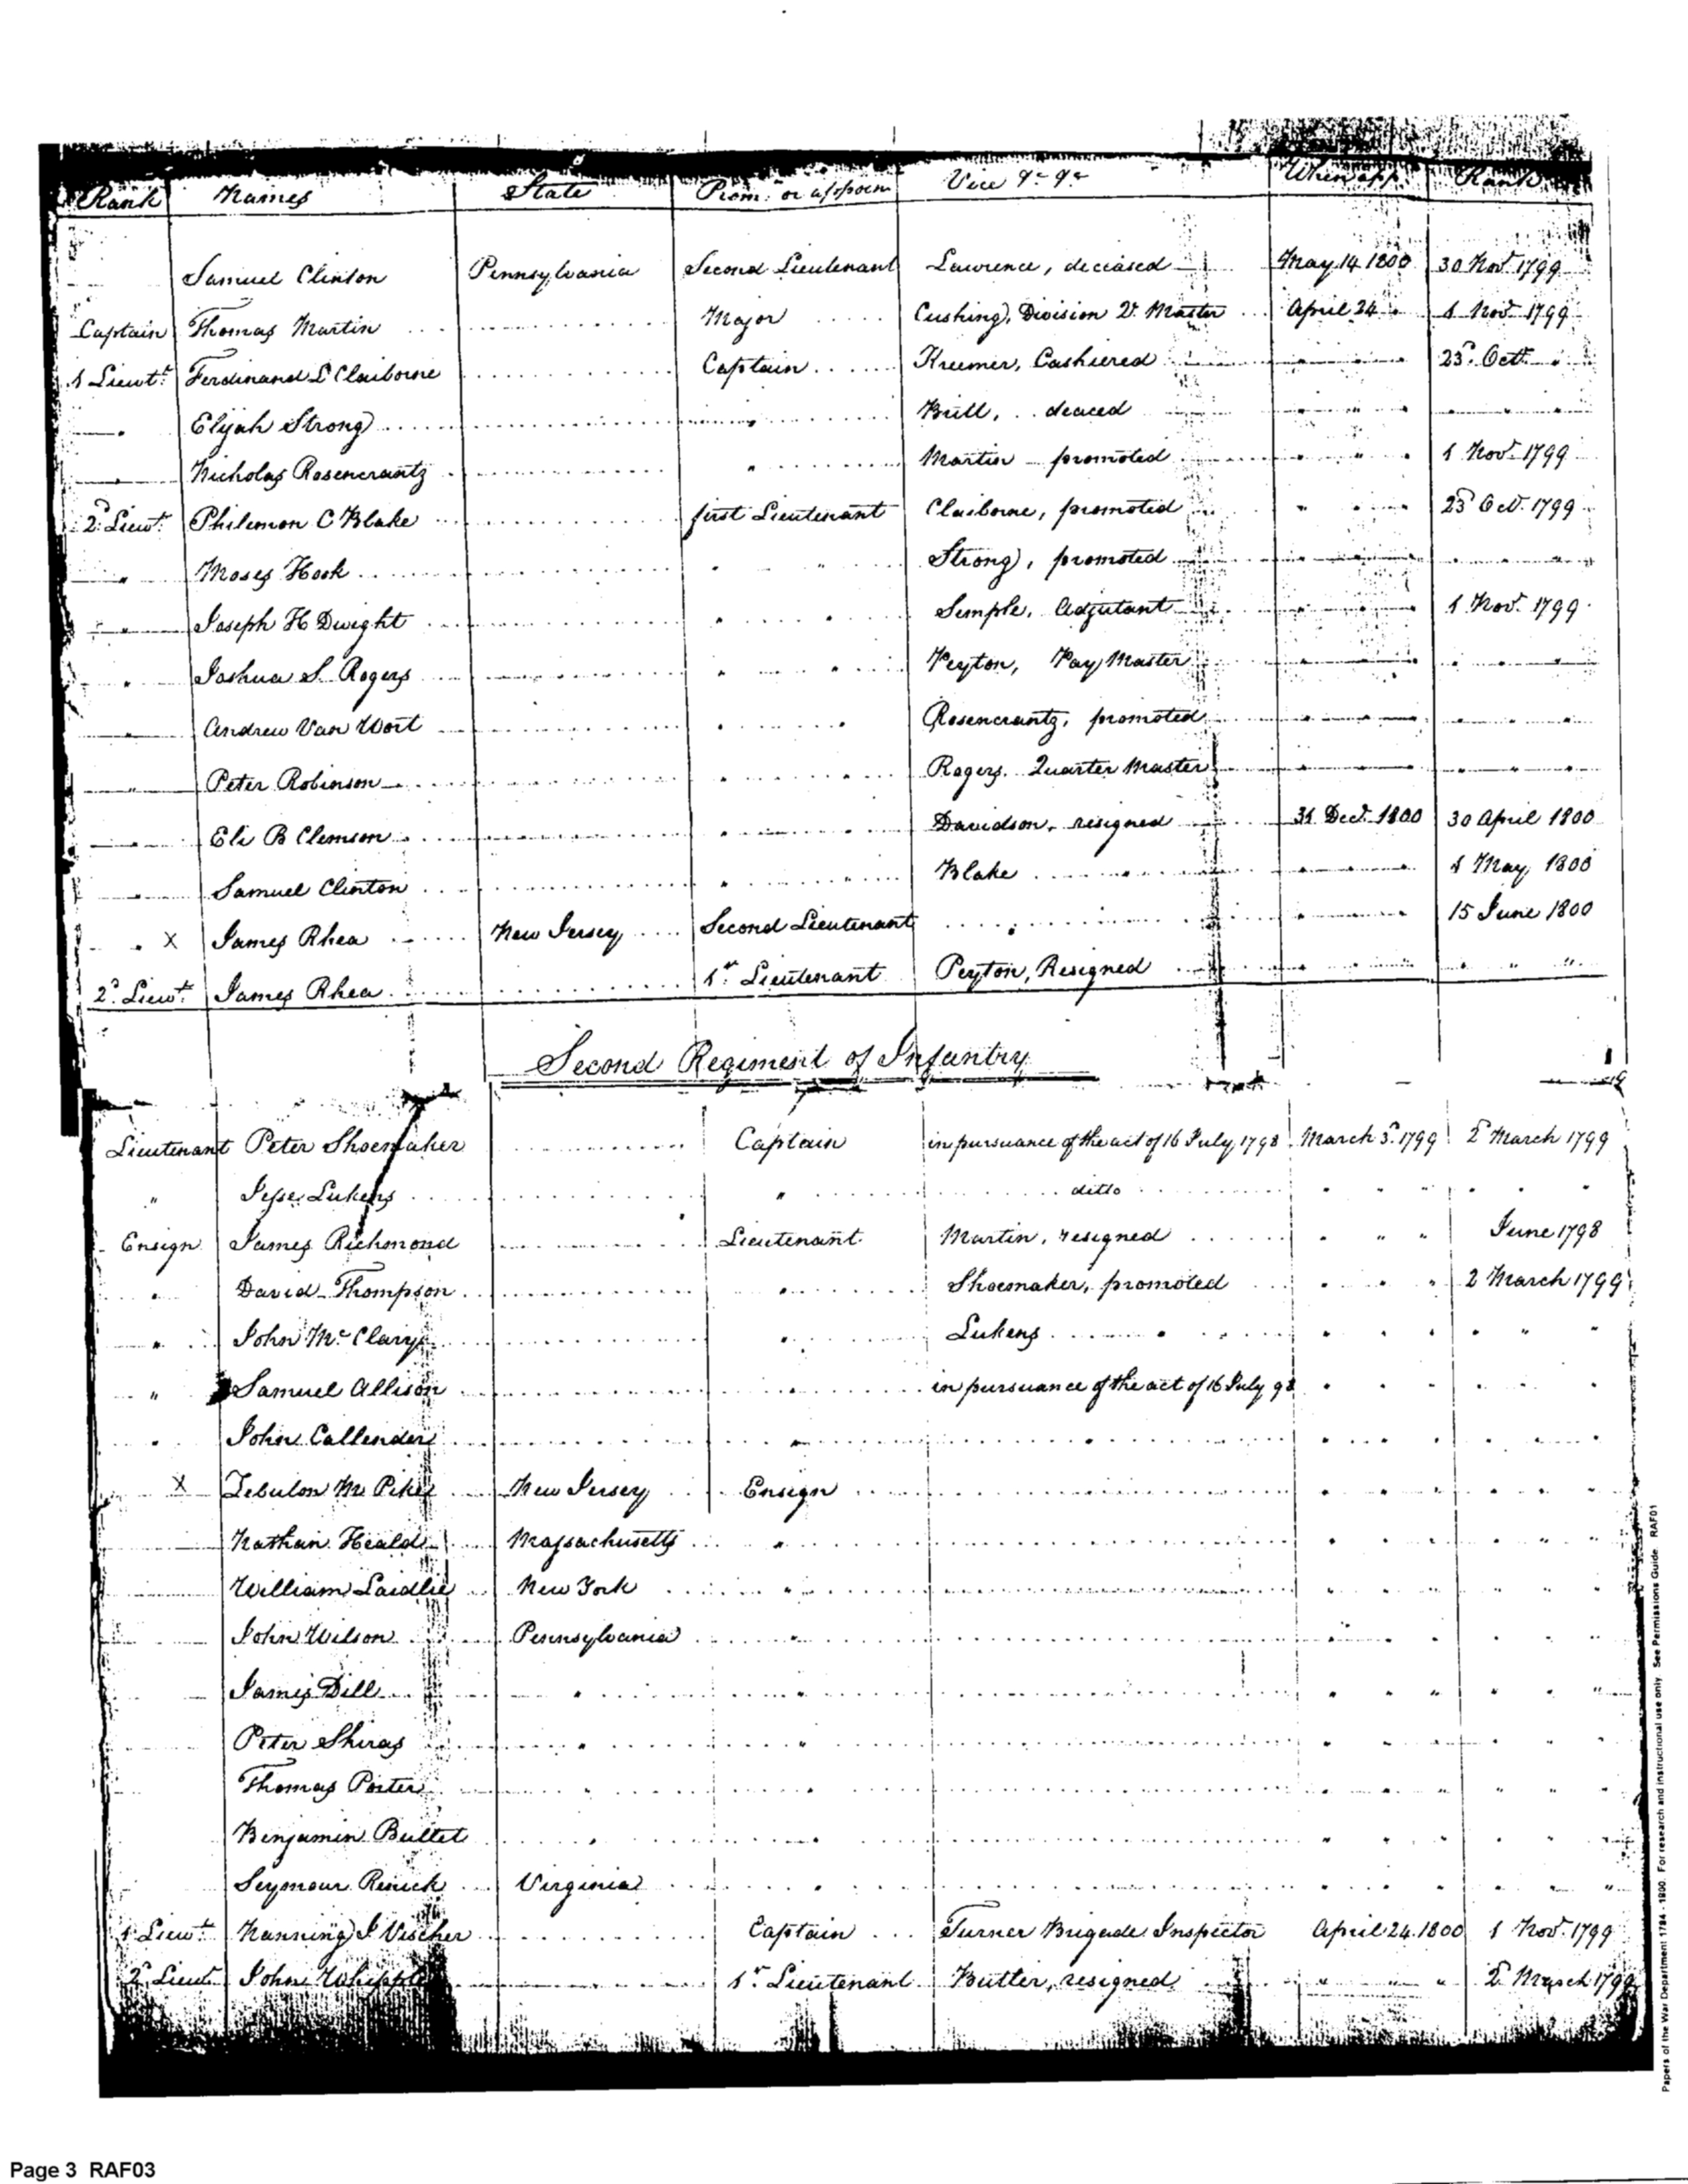 Rank Names State Prom.n or appoin Vice &c &c When app. Rank
Samuel Clinton Pennsylvania Second Lieutenant Lawrence, deceased May 14 1800 30 Nov.r 1799
Captain Thomas Martin Major Cushing, Division Q. Master April 24 " 1 Nov.r 1799
1 Lieut.t Ferdinand L Claiborne Captain Kreemer, Cashiered " " 23.d Oct.r "
" Elijah Strong " Bull, deaced " " " " "
" Nicholas Rosencrantz " Martin promoted " " " 1 Nov.r 1799
2.d Lieut.t Philemon C Blake first Lieutenant Claiborne, promoted " " " 23.d Oct.r 1799
" Moses Hook " " Strong, promoted " " " " " "
" Joseph H Dwight " " Semple, Adjutant " " " 1 Nov.r 1799
" Joshua S. Rogers " " Peyton, Pay Master " " " " "
" Andrew Van Wort " " Rosencrantz, promoted " " " "
" Peter Robinson " " Rogers. Quarter Master " " " "
" Eli B Clemson " " Davidson, resigned 31 Dec.r 1800 30 April 1800
" Samuel Clinton " " Blake " " " 1 May 1800
" X James Rhea New Jersey Second Lieutenant " " 15 June 1800
2.d Lieut.t James Rhea 1.st Lieutenant Peyton, Resigned " " " " " "
Second Regiment of Infantry
Lieutenant Peter Shoemaker Captain in pursuance of the act of 16 July 1798 March 3.d 1799 2.d March 1799
" Jesse Lukens " ditto " " " " " "
Ensign James Richmond Lieutenant Martin, resigned " " " June 1798
" David Thompson " Shoemaker, promoted " " " 2 March 1799
" John Mc Clary " Lukens " " " " " " "
" Samuel Allison " in pursuance of the act of 16 July 98 " " " " " "
" John Callender " " " " " " "
X Zebulon M Pike New Jersey Ensign " " " " " "
Nathan Heald Massachusetts " " " " " " "
William Laidlie New York " " " " " " "
John Wilson Pennsylvania " " " " " " "
James Dill " " " " " " " "
Peter Shiras " " " " " " " "
Thomas Porter " " " " " " " "
Benjamin Bullet " " " " " " " "
Seymour Renick Virginia " " " " " " "
1 Lieu.t Nanning J Vischer Captain Turner Brigade Inspector April 24. 1800 1 Nov.r 1799
2.d Lieut John Whipple 1.st Lieutenant Butler, resigned " " " 2.d March 1799
Papers of the War Department 1784 - 1800. For research and instructional use only. See Permissions Guide RAF01
Page 3 RAF03